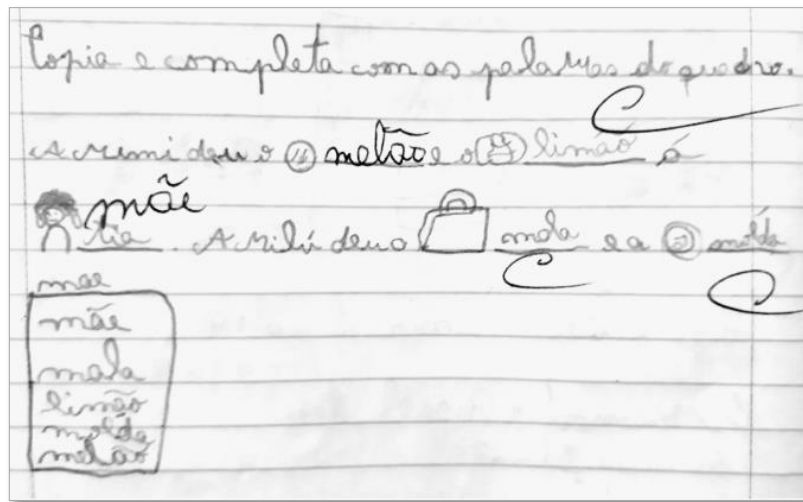 Copia e completa com as palavras do quadro.
A mimi deu o melão e o limão á
mãe
tia. A Milú deu a mala e a molda
mãe
mãe
mala
limão
molda
melão